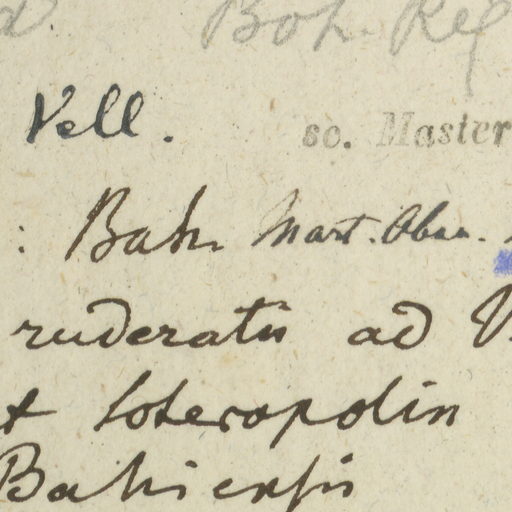 Vell.
sc. Master
: Bah. Mart. Obser.
ruderatis ad V
t Soteropolin
Bahiensis